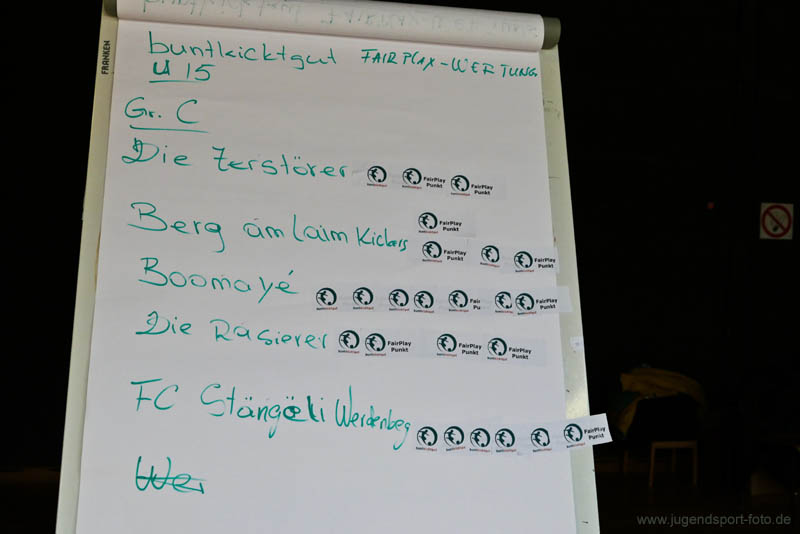 FRANKEN
buntkicktgut FAIRPLAX-WERTUNG
U 15
Gr. C
Die Zerstörer FairPlay Punkt FairPlay Punkt
FairPlay Punkt
Berg am Laim Kickers FairPlay Punkt FairPlay Punkt
Boomayé FairPlay Punkt
Die Rasierer FairPlay Punkt FairPlay Punkt FairPlay Punkt
FC Stängeli Werdenbeg FairPlay Punkt
Wer
www.jugendsport-foto.de